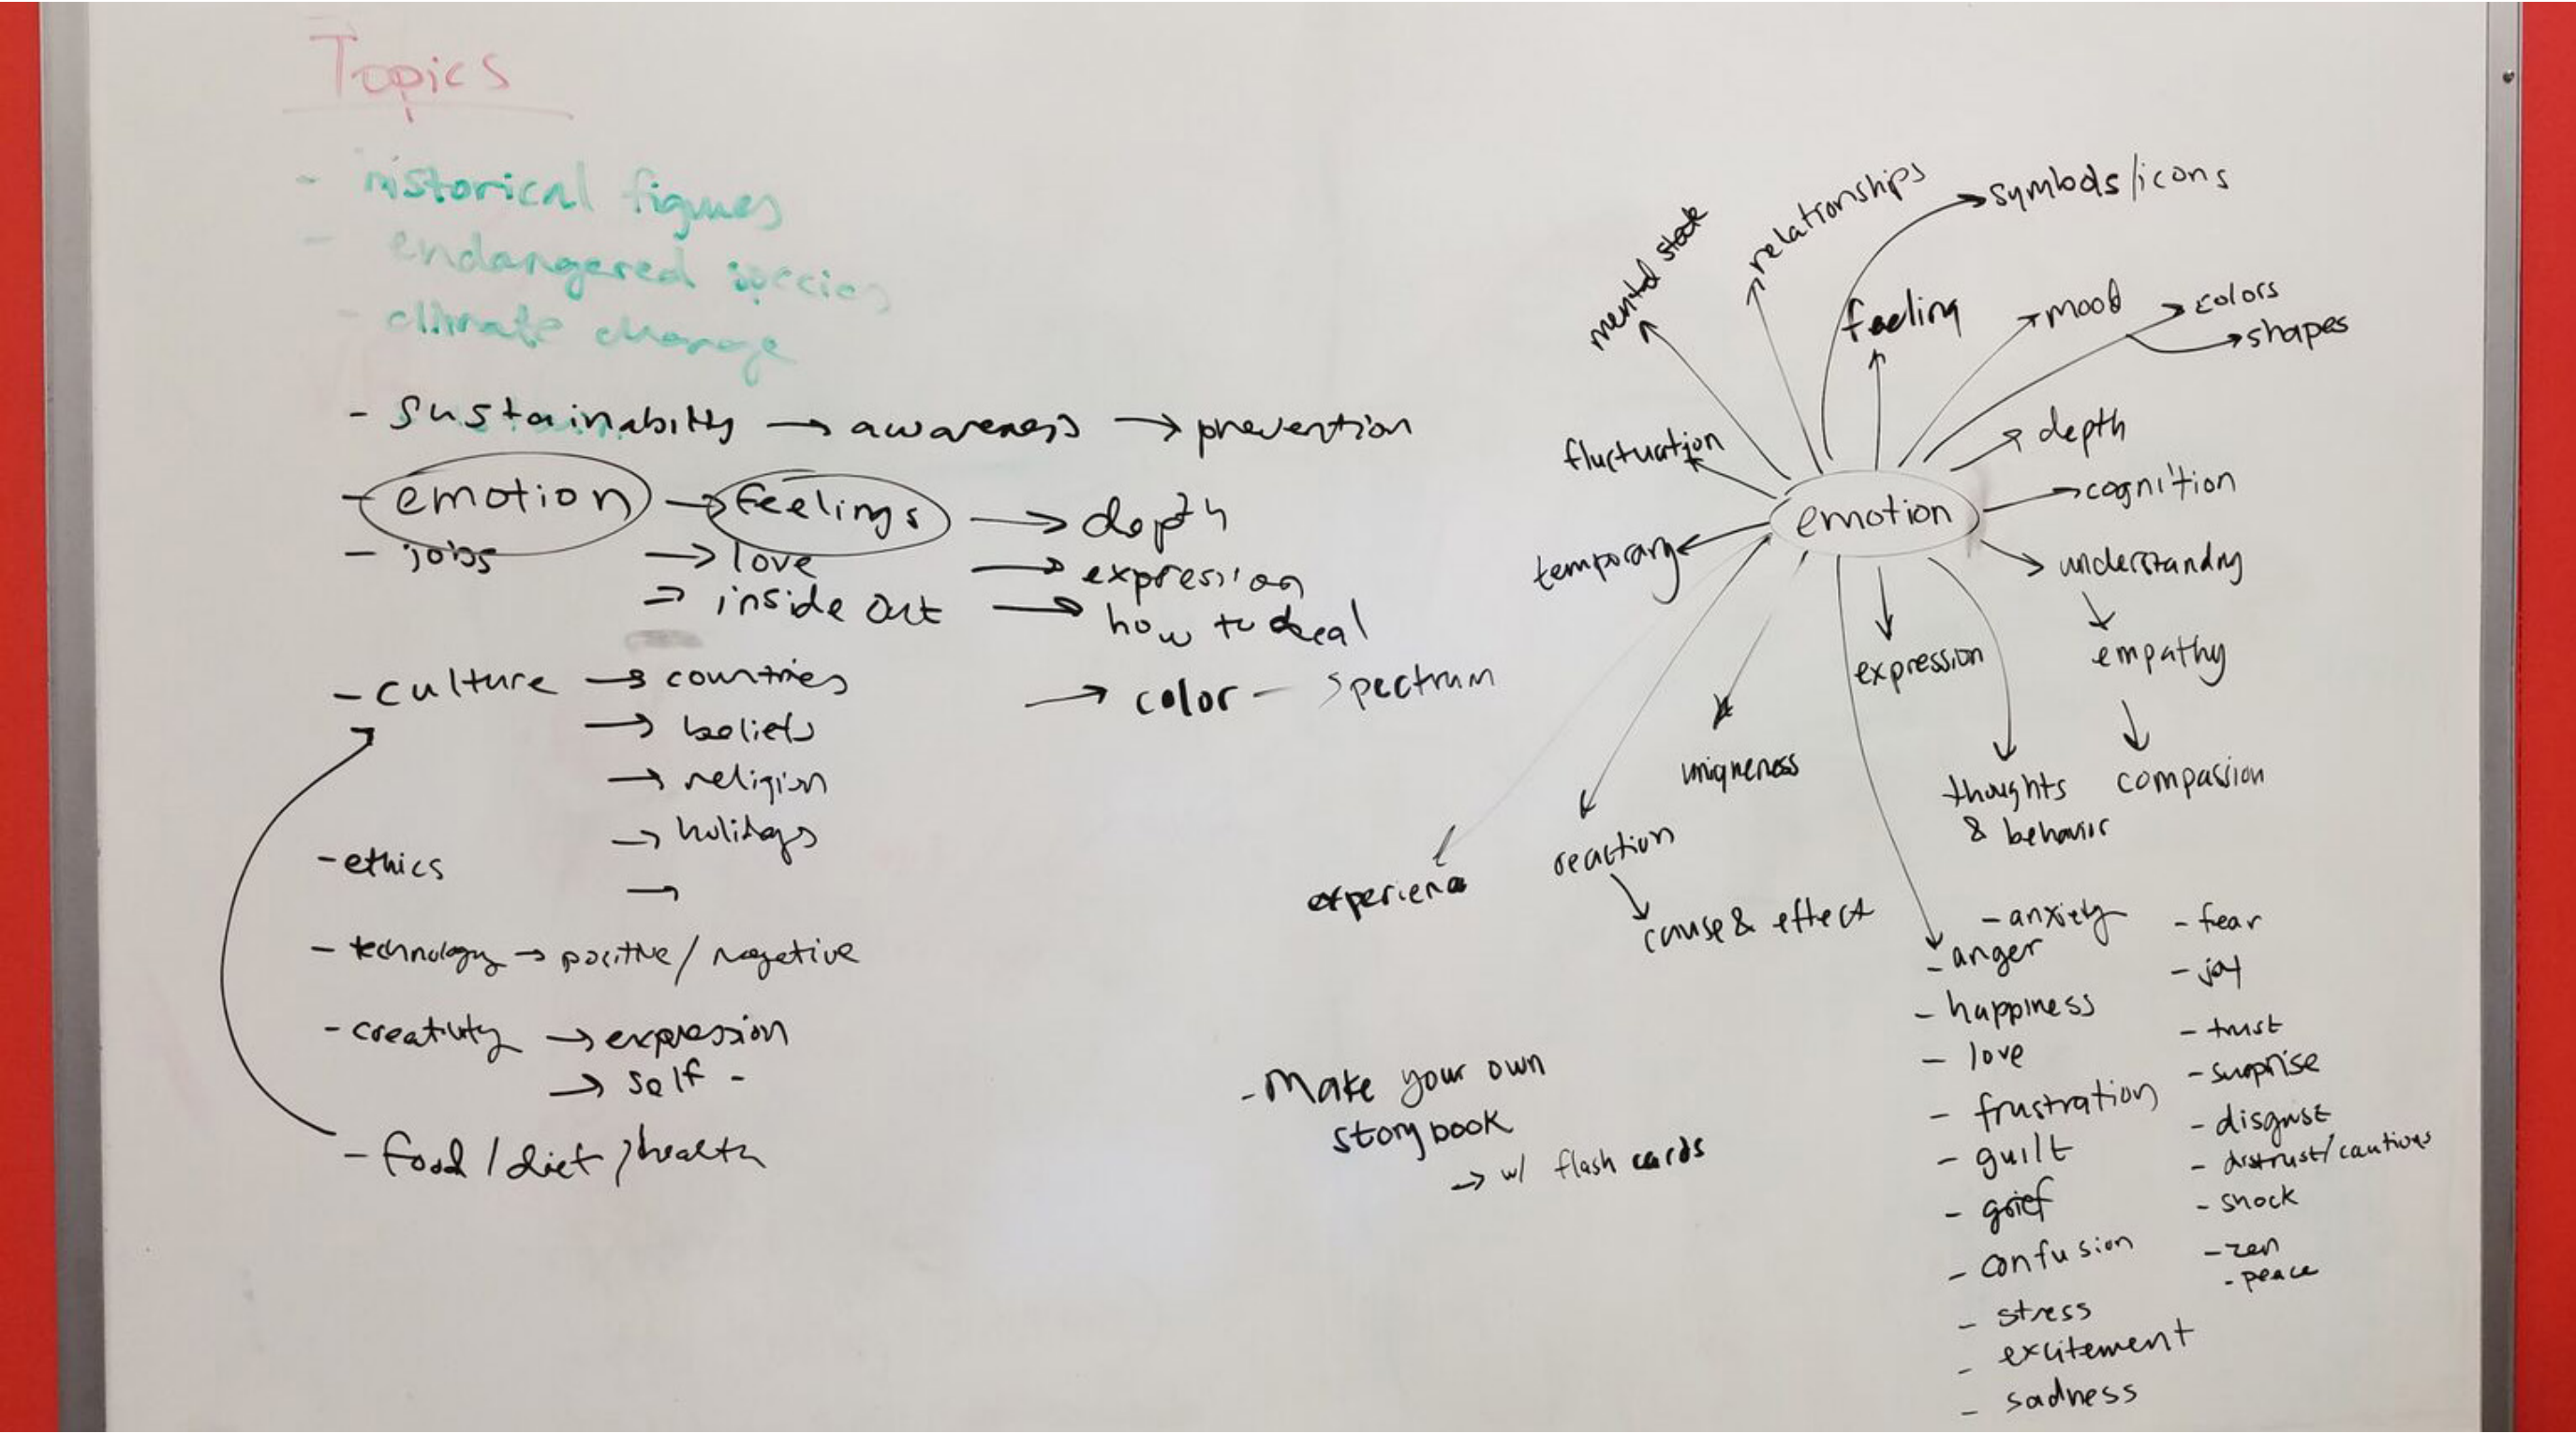 Topics
- historical figures
- endangered species
- climate change
- sustainability → awareness → prevention
- emotion → feelings → depth
- jobs → love → expression
→ inside out → how to deal
- culture → countries → color - spectrum
→ beliefs
→ religion
→ holidays
- ethics →
- technology → positive / negative
- creativity → expression
→ self -
- food / diet / health
- Make your own
storybook
→ w/ flash cards
emotion
mental state
relationships
symbols/icons
feeling
mood
colors
shapes
depth
cognition
understanding
empathy
compassion
thoughts
& behavior
expression
uniqueness
reaction
cause & effect
experience
temporary
fluctuation
- anxiety
- anger
- happiness
- love
- frustration
- guilt
- grief
- confusion
- stress
- excitement
- sadness
- fear
- joy
- trust
- surprise
- disgust
- distrust/cautious
- shock
- zen
- peace